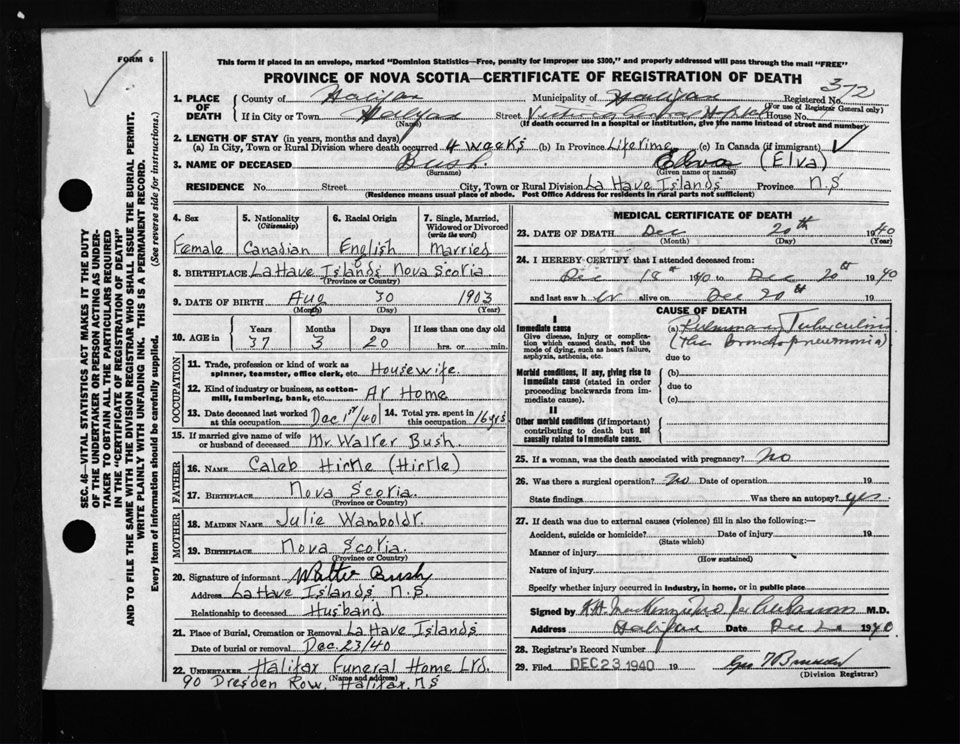 FORM 6
This form if placed in an envelope, marked "Dominion Statistics—Free, penalty for improper use $300," and properly addressed will pass through the mail "FREE"
PROVINCE OF NOVA SCOTIA—CERTIFICATE OF REGISTRATION OF DEATH
372
1. PLACE OF DEATH County of Halifax Municipality of Halifax Registered No. (For use of Registrar General only)
If in City or Town Halifax (Name) Street Victoria General House No.
(If death occurred in a hospital or institution, give the name instead of street and number)
2. LENGTH OF STAY (in years, months and days)
(a) In City, Town or Rural Division where death occurred 4 weeks (b) In Province Lifetime (c) In Canada (if immigrant)
3. NAME OF DECEASED Bush Elva (Elva)
(Surname) (Given name or names)
RESIDENCE No. Street City, Town or Rural Division La Have Islands Province N.S
(Residence means usual place of abode. Post Office Address for residents in rural parts not sufficient)
4. Sex Female
5. Nationality (Citizenship) Canadian
6. Racial Origin English
7. Single, Married, Widowed or Divorced (write the word) Married
8. BIRTHPLACE LaHave Islands Nova Scotia
(Province or Country)
9. DATE OF BIRTH Aug 30 1903
(Month) (Day) (Year)
10. AGE in Years 37 Months 3 Days 20 If less than one day old hrs. or min.
OCCUPATION
11. Trade, profession or kind of work as spinner, teamster, office clerk, etc. Housewife.
12. Kind of industry or business, as cotton-mill, lumbering, bank, etc. At Home
13. Date deceased last worked at this occupation Dec 1st/40 14. Total yrs. spent in this occupation 16 yrs
15. If married give name of wife or husband of deceased Mr. Walter Bush
FATHER
16. NAME Caleb Hirtle (Hirtle)
17. BIRTHPLACE Nova Scotia
(Province or Country)
MOTHER
18. MAIDEN NAME Julie Wamboldt.
19. BIRTHPLACE Nova Scotia.
(Province or Country)
20. Signature of informant Walter Bush
Address LaHave Islands N.S.
Relationship to deceased Husband
21. Place of Burial, Cremation or Removal La Have Islands
Date of burial or removal Dec 23/40
22. UNDERTAKER Halifax Funeral Home Ltd.
(Name and address)
90 Dresden Row, Halifax, N S
MEDICAL CERTIFICATE OF DEATH
23. DATE OF DEATH Dec 20th 1940
(Month) (Day) (Year)
24. I HEREBY CERTIFY that I attended deceased from:
Dec 18th 1940 to Dec 20th 1940
and last saw her alive on Dec 20th 19
CAUSE OF DEATH
I
Immediate cause
Give disease, injury or complication which caused death, not the mode of dying, such as heart failure, asphyxia, asthenia, etc.
(a) Pulmonary Tuberculosis
Bronchopneumonia)
due to
Morbid conditions, if any, giving rise to immediate cause (stated in order proceeding backwards from immediate cause).
(b)
due to
(c)
II
Other morbid conditions (if important) contributing to death but not causally related to immediate cause.
25. If a woman, was the death associated with pregnancy? No
26. Was there a surgical operation? No Date of operation 19
State findings Was there an autopsy? yes
27. If death was due to external causes (violence) fill in also the following:—
Accident, suicide or homicide? Date of injury 19
(State which)
Manner of injury
(How sustained)
Nature of injury
Specify whether injury occurred in industry, in home, or in public place
Signed by M.D.
Address Halifax Date Dec 1940.
28. Registrar's Record Number
29. Filed DEC 23 1940 19
(Division Registrar)
SEC. 46—VITAL STATISTICS ACT MAKES IT THE DUTY OF THE UNDERTAKER OR PERSON ACTING AS UNDERTAKER TO OBTAIN ALL THE PARTICULARS REQUIRED IN THE "CERTIFICATE OF REGISTRATION OF DEATH" AND TO FILE THE SAME WITH THE DIVISION REGISTRAR WHO SHALL ISSUE THE BURIAL PERMIT.
WRITE PLAINLY WITH UNFADING INK. THIS IS A PERMANENT RECORD.
Every item of information should be carefully supplied. (See reverse side for instructions.)